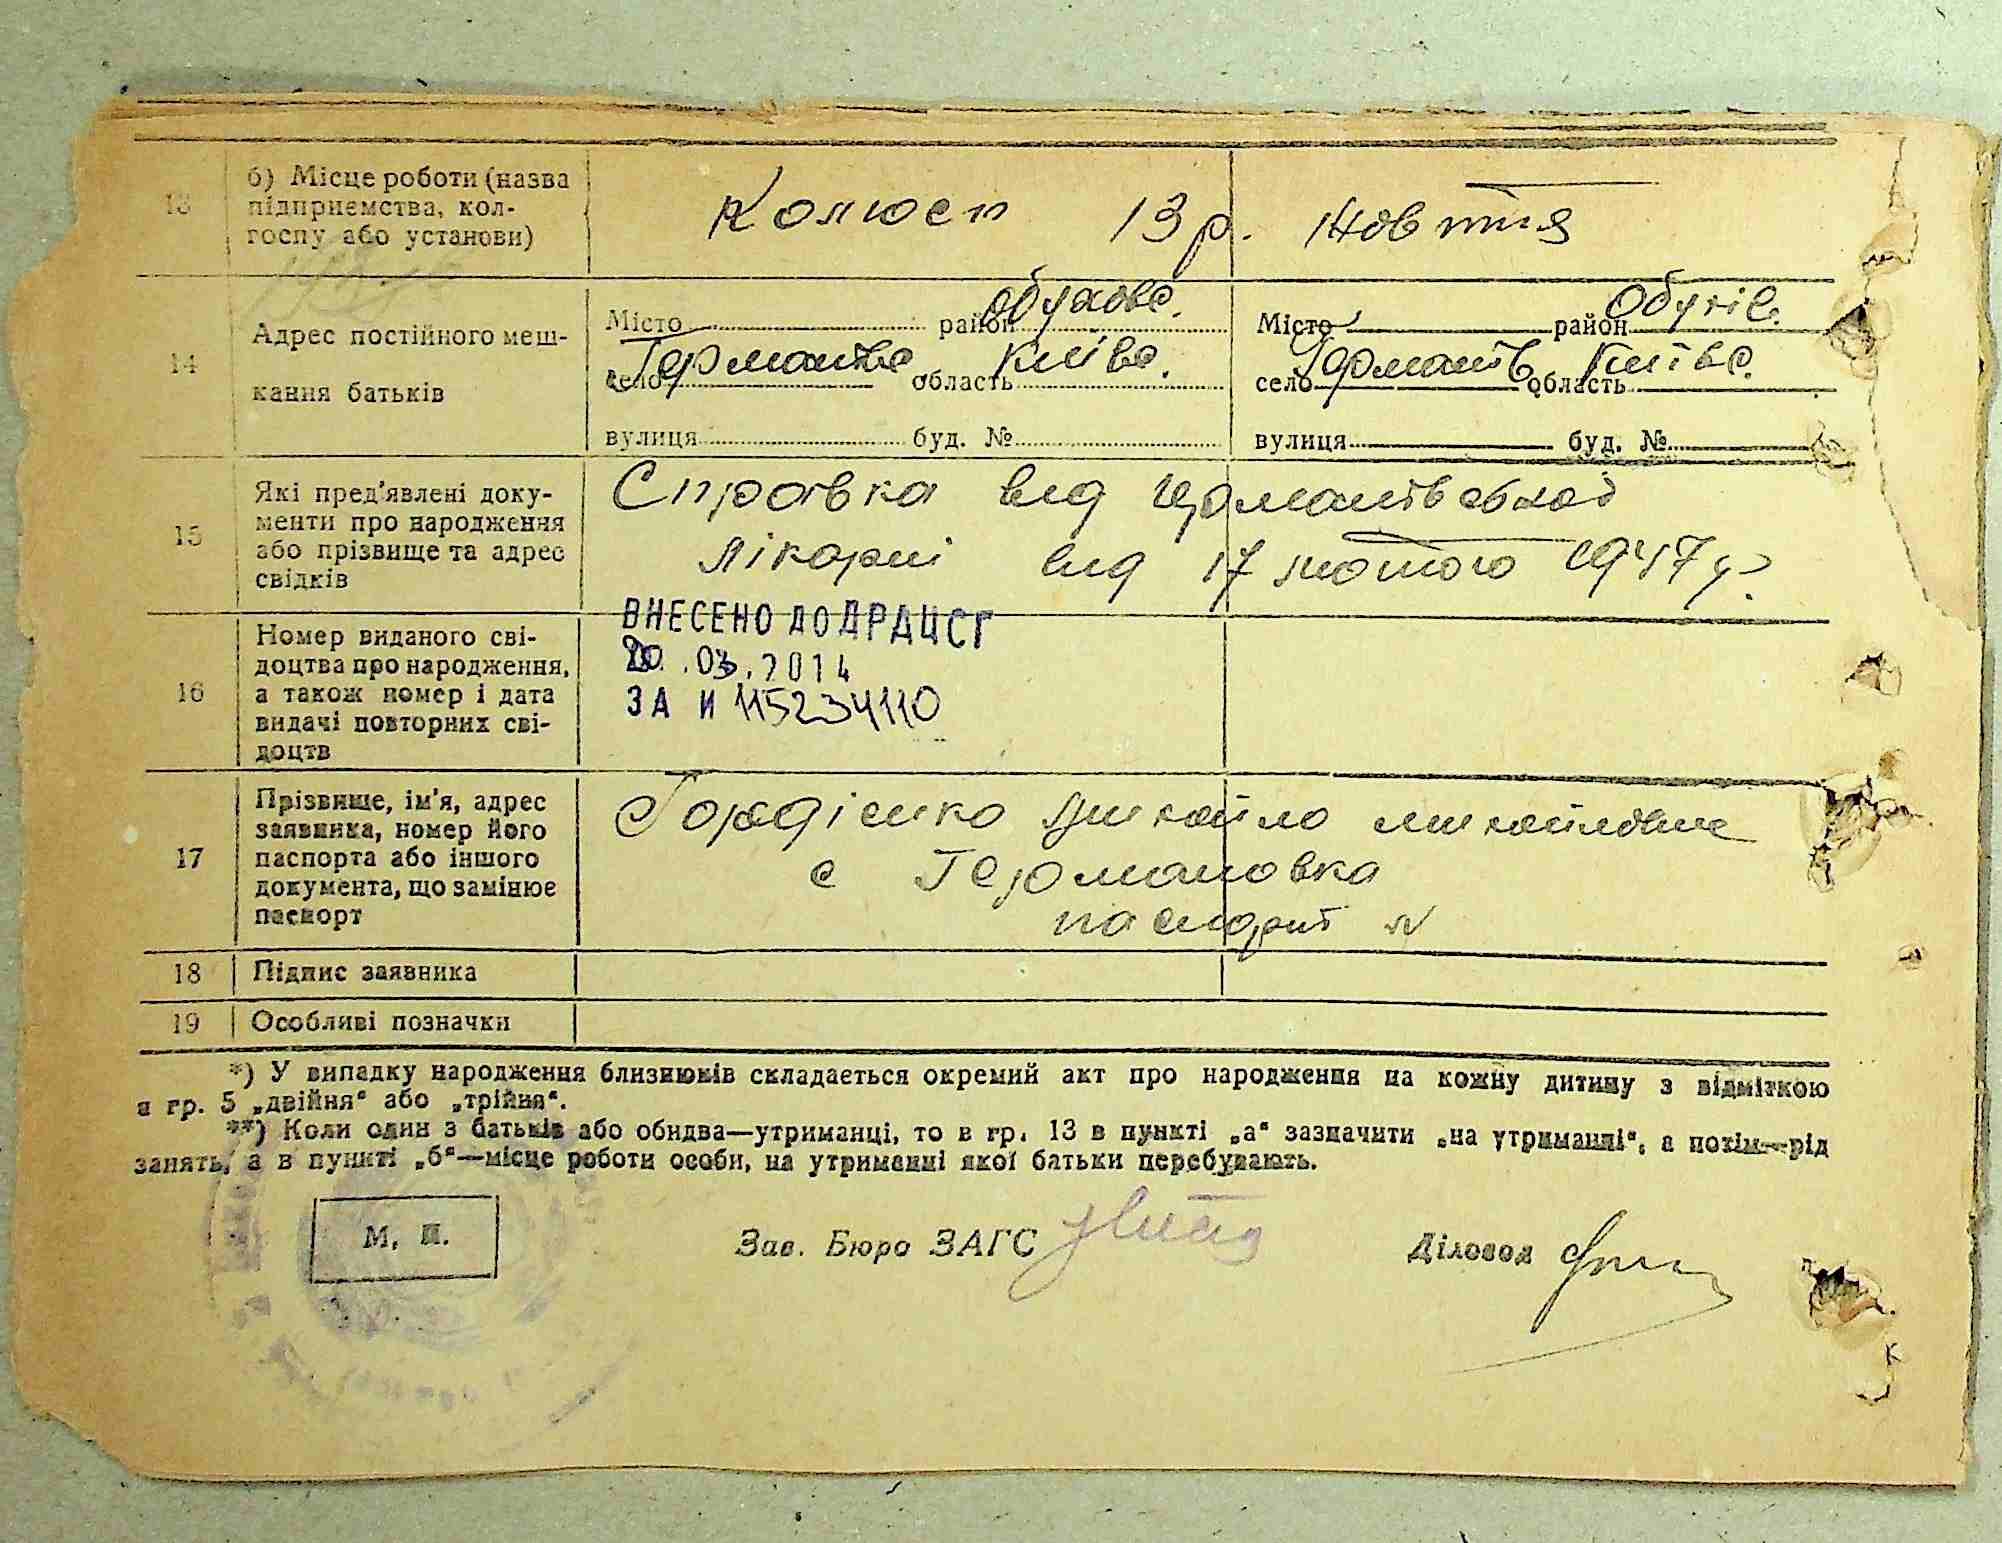 13
б) Місце роботи (назва
підприємства, кол-
госпу або установи)
13 р. Жовтня
14
Адрес постійного меш-
кання батьків
Місто район Обухов.
село Германівс область Київс.
вулиця буд. №
Місто район Обухів.
село Германів область Київс.
вулиця буд. №
15
Які пред'явлені доку-
менти про народження
або прізвище та адрес
свідків
Справка від
лікарні від 17 лютого 1947 р.
16
Номер виданого сві-
доцтва про народження,
а також номер і дата
видачі повторних сві-
доцтв
ВНЕСЕНО ДО ДРАЦСГ
20.03.2014
ЗА № 115234110
17
Прізвище, ім'я, адрес
заявника, номер його
паспорта або іншого
документа, що замінює
паспорт
Гордієнко Михайло Михайлович
с Германовка
паспорт №
18
Підпис заявника
19
Особливі позначки
*) У випадку народження близнюків складається окремий акт про народження на кожну дитину з відміткою
в гр. 5 „двійня“ або „трійня“.
**) Коли один з батьків або обидва—утриманці, то в гр. 13 в пункті „а“ зазначити „на утриманні“, а потім—рід
занять, а в пункті „б“—місце роботи особи, на утриманні якої батьки перебувають.
М. П.
Зав. Бюро ЗАГС
Діловод